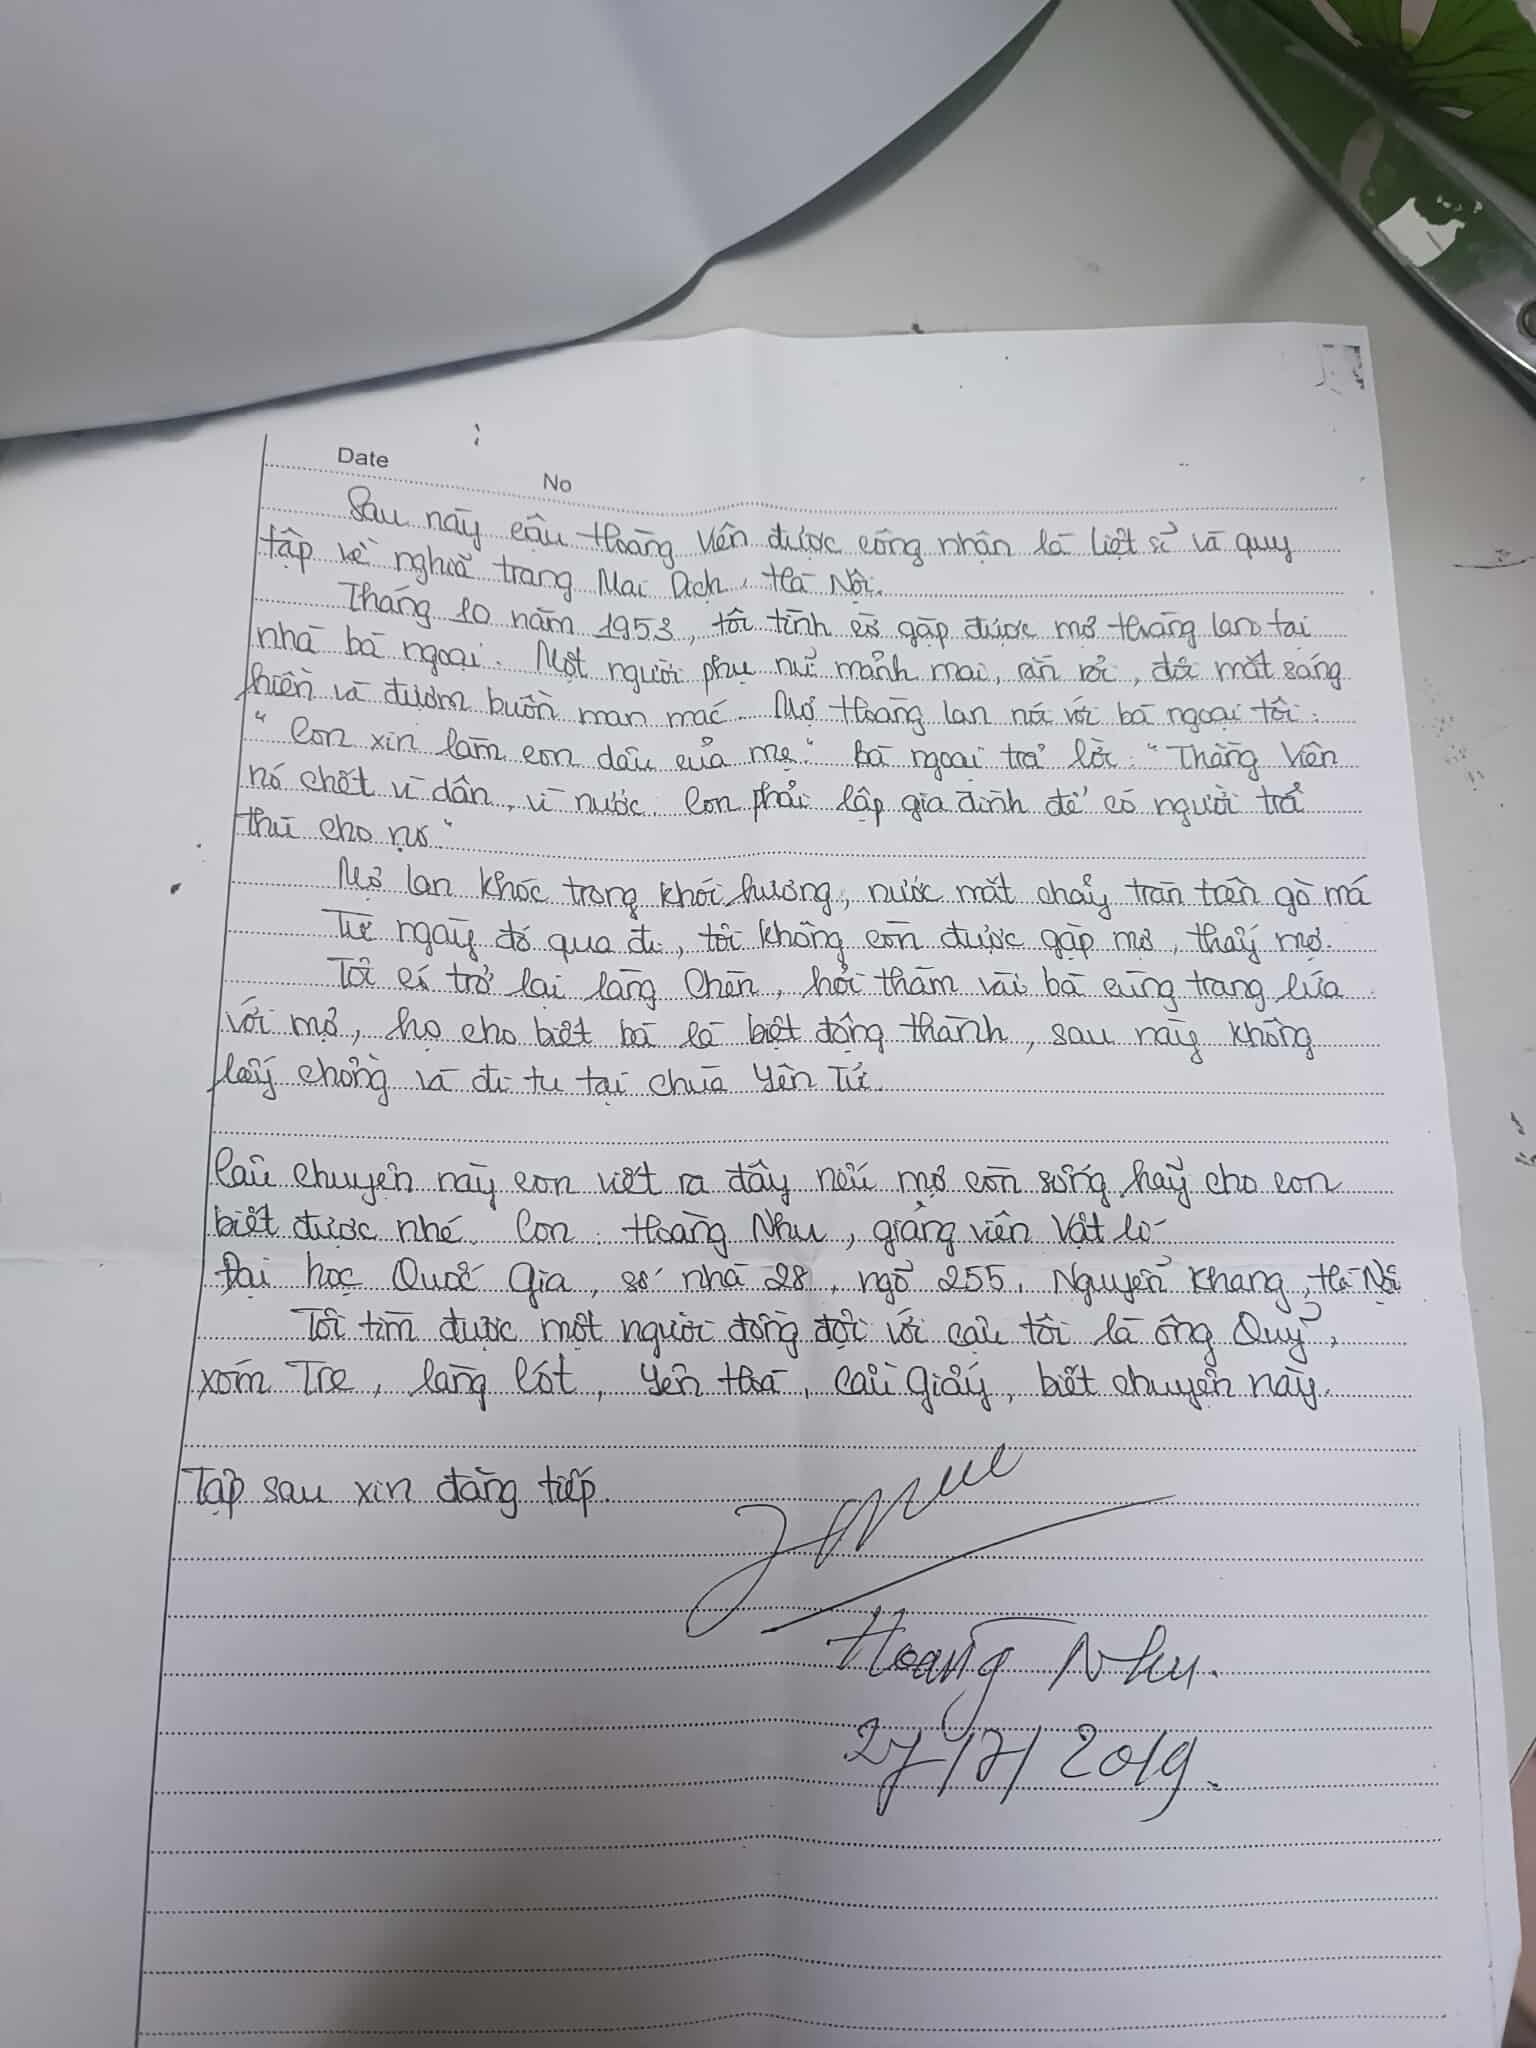 Date
No
Sau này cậu Hoàng Viên được công nhận là liệt sĩ và quy
tập về nghĩa trang Mai Dịch, Hà Nội.
Tháng 10 năm 1953, tôi tình cờ gặp được mợ Hoàng Lan tại
nhà bà ngoại. Một người phụ nữ mảnh mai, rắn rỏi, đôi mắt sáng
hiền và đượm buồn man mác. Mợ Hoàng Lan nói với bà ngoại tôi:
"Con xin làm con dâu của mẹ" Bà ngoại trả lời: "Thằng Viên
nó chết vì dân, vì nước. Con phải lập gia đình để có người trả
thù cho nó"
Mợ Lan khóc trong khói hương, nước mắt chảy tràn trên gò má
Từ ngày đó qua đi, tôi không còn được gặp mợ, thấy mợ.
Tôi có trở lại làng Chèn, hỏi thăm vài bà cùng trang lứa
với mợ, họ cho biết bà là biệt động thành, sau này không
lấy chồng và đi tu tại chùa Yên Tử.
Câu chuyện này con viết ra đây nếu mợ còn sống hãy cho con
biết được nhé. Con: Hoàng Như, giảng viên Vật lý
Đại học Quốc Gia, số nhà 28, ngõ 255, Nguyễn Khang, Hà Nội
Tôi tìm được một người đồng đội với cậu tôi là ông Quý,
xóm Tre, làng Cót, Yên Hoà, Cầu Giấy, biết chuyện này.
Tập sau xin đăng tiếp.
Hoàng Như.
27/7/2019.